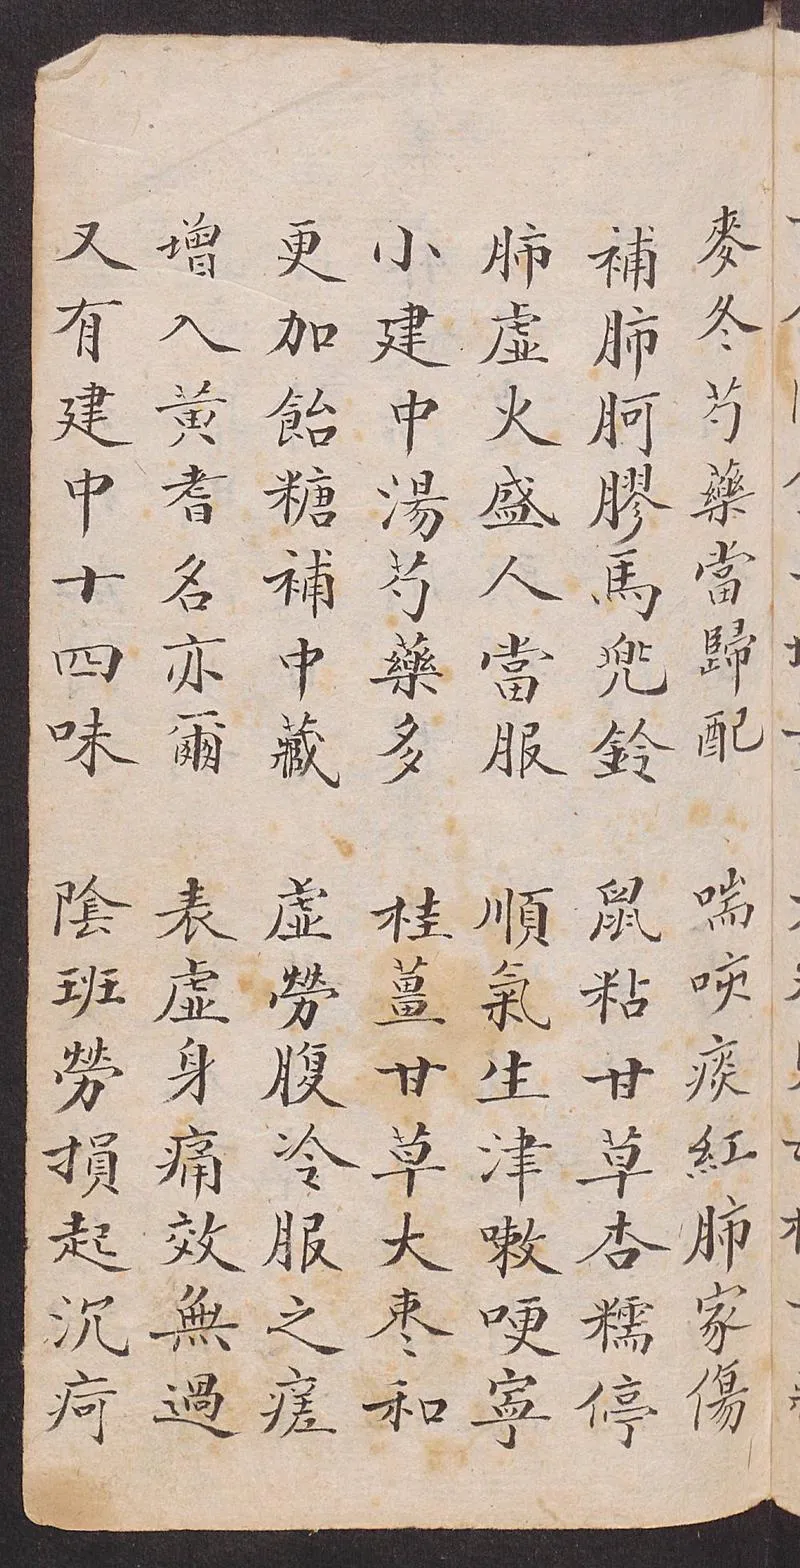 麥冬芍藥當歸配　喘咳痰紅肺家傷
補肺阿膠馬兜鈴　鼠粘甘草杏糯停
肺虛火盛人當服　順氣生津嗽哽寧
小建中湯芍藥多　桂薑甘草大棗和
更加飴糖補中藏　虛勞腹冷服之瘥
增入黃耆名亦爾　表虛身痛效無過
又有建中十四味　陰班勞損起沉疴